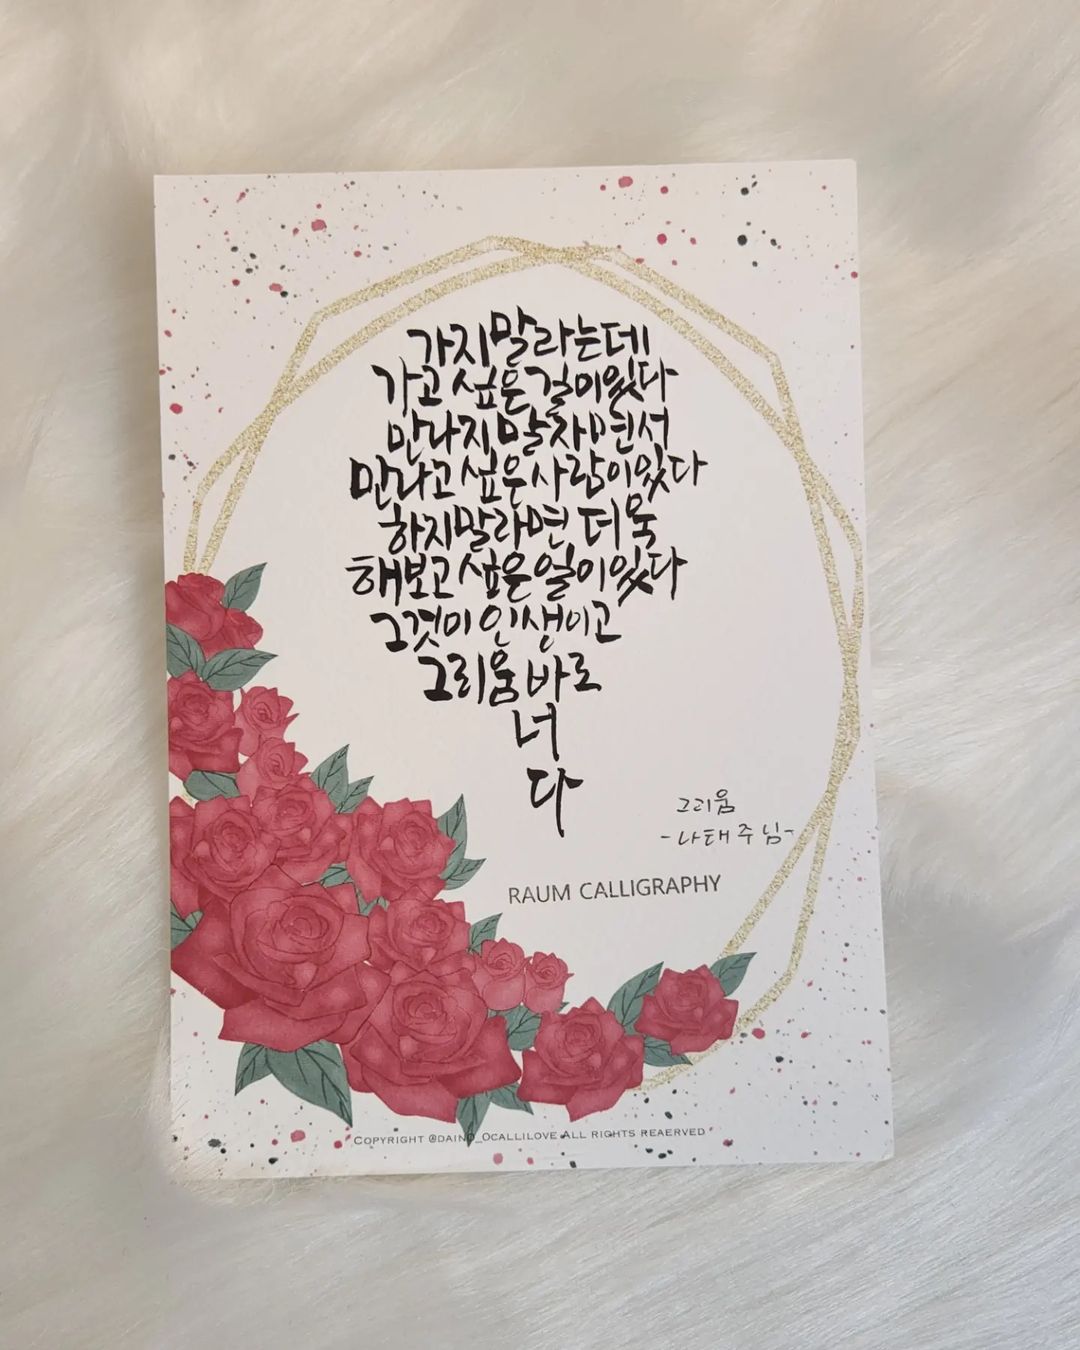 가지말라는데
가고 싶은 길이있다
만나지 말자면서
만나고 싶은 사람이있다
하지말라면 더욱
해보고 싶은 일이있다
그것이 인생이고
그리움 바로
너
다
그리움
-나태주님-
RAUM CALLIGRAPHY
COPYRIGHT @DAINO_OCALLILOVE ALL RIGHTS REAERVED